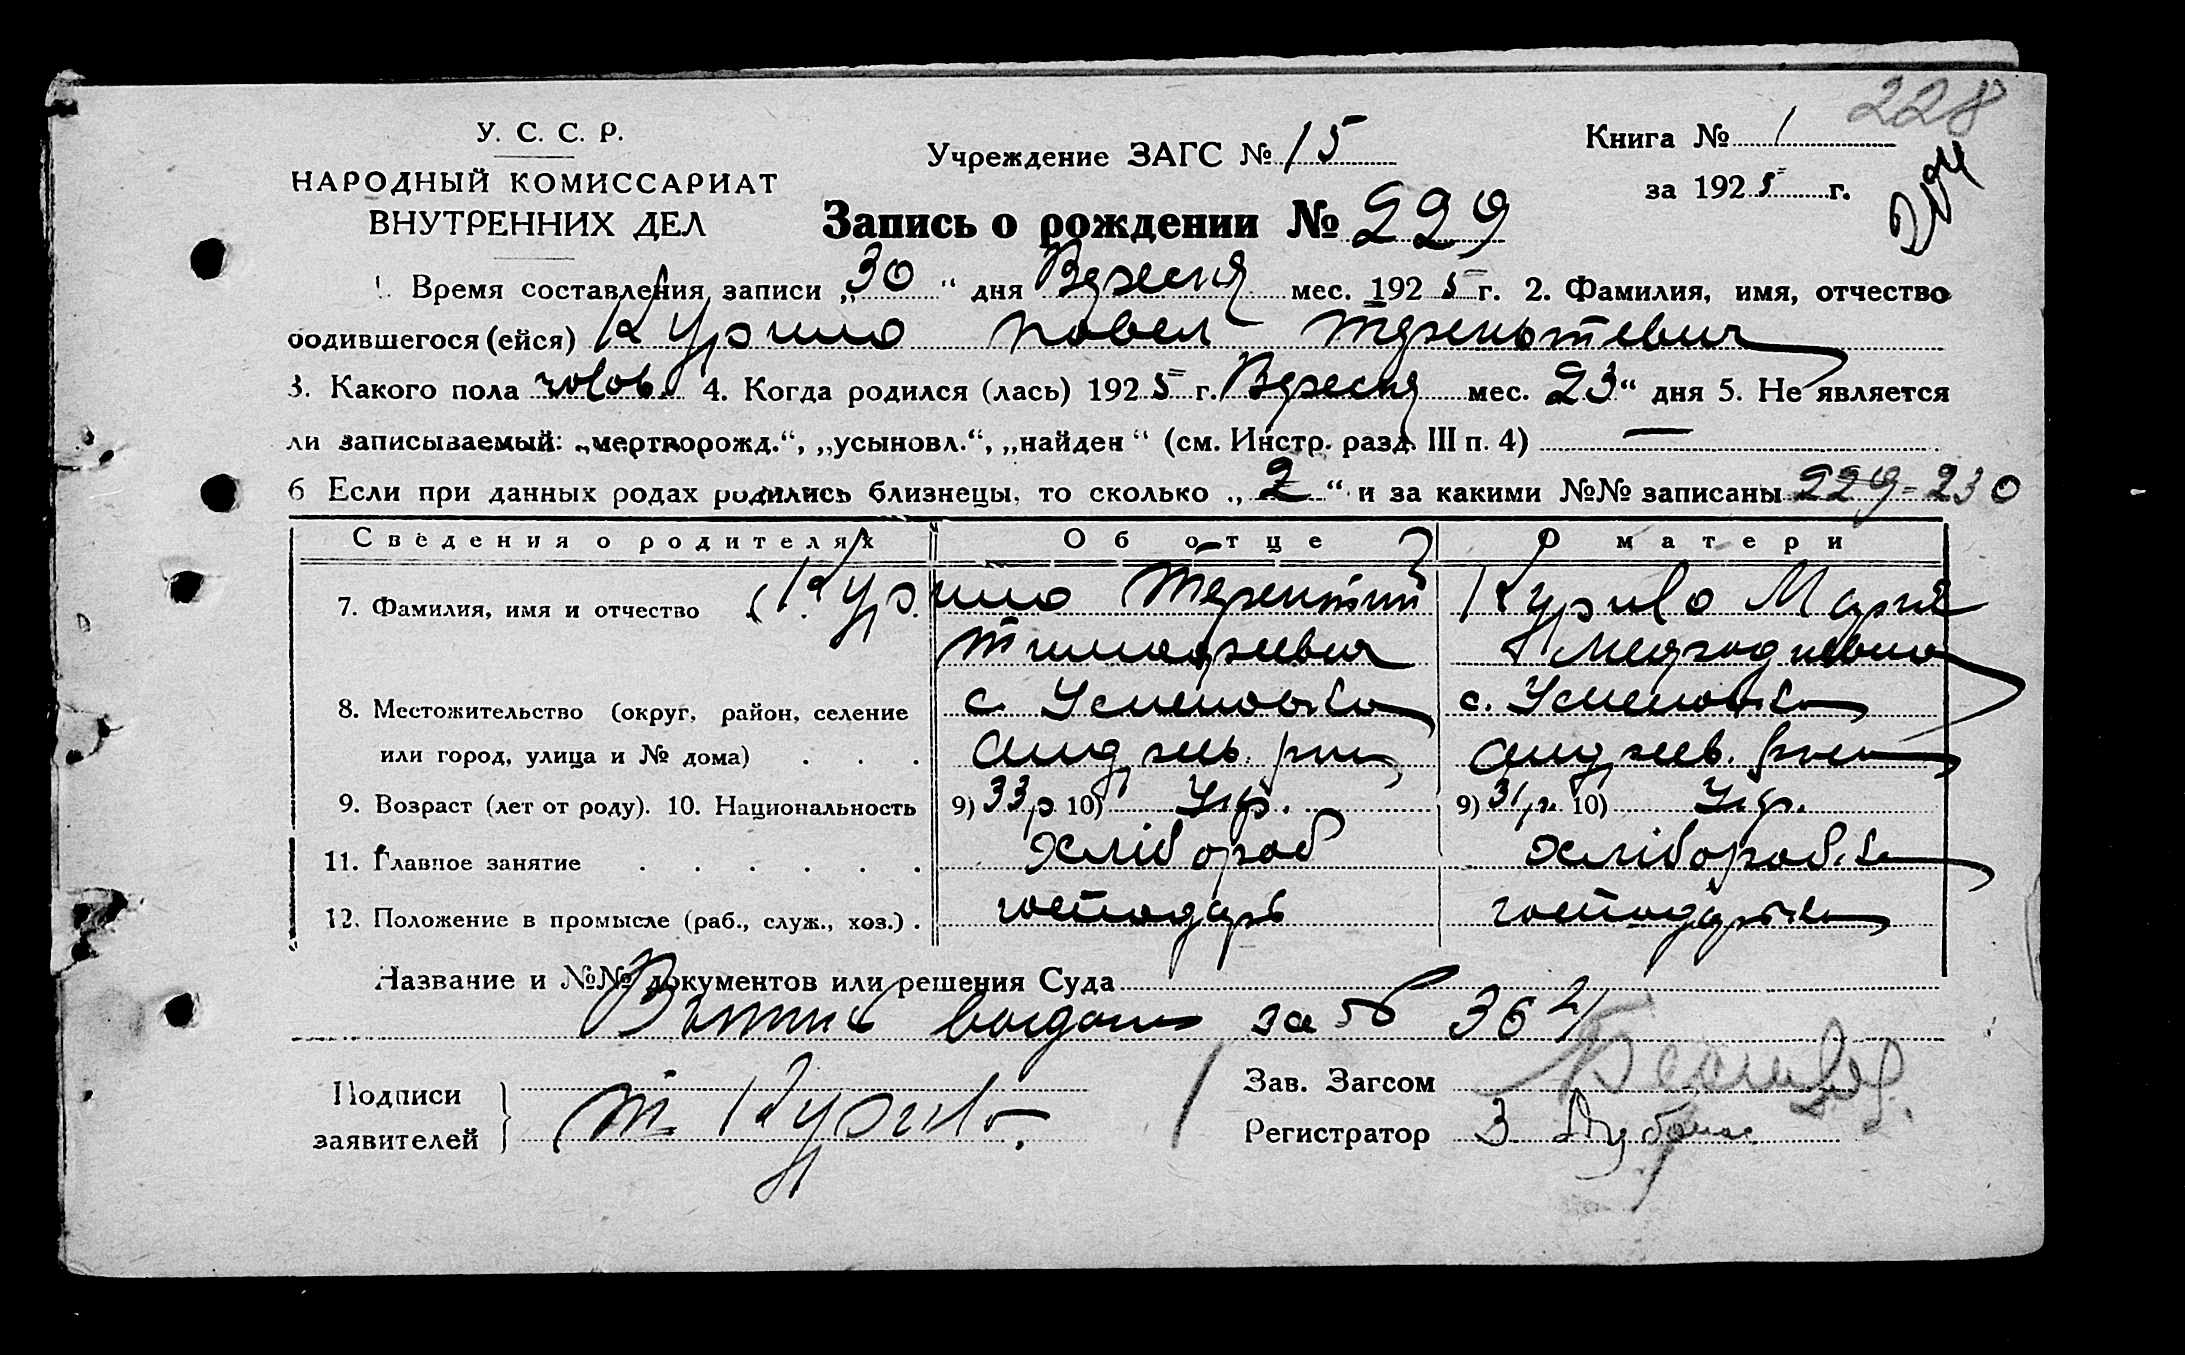 228
У. С. С. Р.
НАРОДНЫЙ КОМИССАРИАТ
ВНУТРЕННИХ ДЕЛ
Учреждение ЗАГС № 15
Книга № 1
за 1925 г.
Запись о рождении № 229
1. Время составления записи „30“ дня Вересня мес. 1925 г. 2. Фамилия, имя, отчество
родившегося (ейся) Курило Павел Терентьтевич
3. Какого пола чолов. 4. Когда родился (лась) 1925 г. Вересня мес. 23“ дня 5. Не является
ли записываемый: „мертворожд.“, „усыновл.“, „найден“ (см. Инстр. разд. III п. 4) —
6 Если при данных родах родились близнецы, то сколько „2“ и за какими №№ записаны 229-230
Сведения о родителях Об отце О матери
7. Фамилия, имя и отчество Курило Терентий Курило Мария
Тимофеевич
8. Местожительство (округ, район, селение с. Успеновка с. Успеновка
или город, улица и № дома) . . . Андреев. Андреев.
9. Возраст (лет от роду). 10. Национальность 9) 33 р. 10) Укр. 9) 31 р. 10) Укр.
11. Главное занятие . . . . . . Хлібороб Хлібороб.ка
12. Положение в промысле (раб., служ., хоз.) . господарь господарька
Название и №№ документов или решения Суда
за № 364
Подписи
заявителей
Т. Курило.
Зав. Загсом
Регистратор